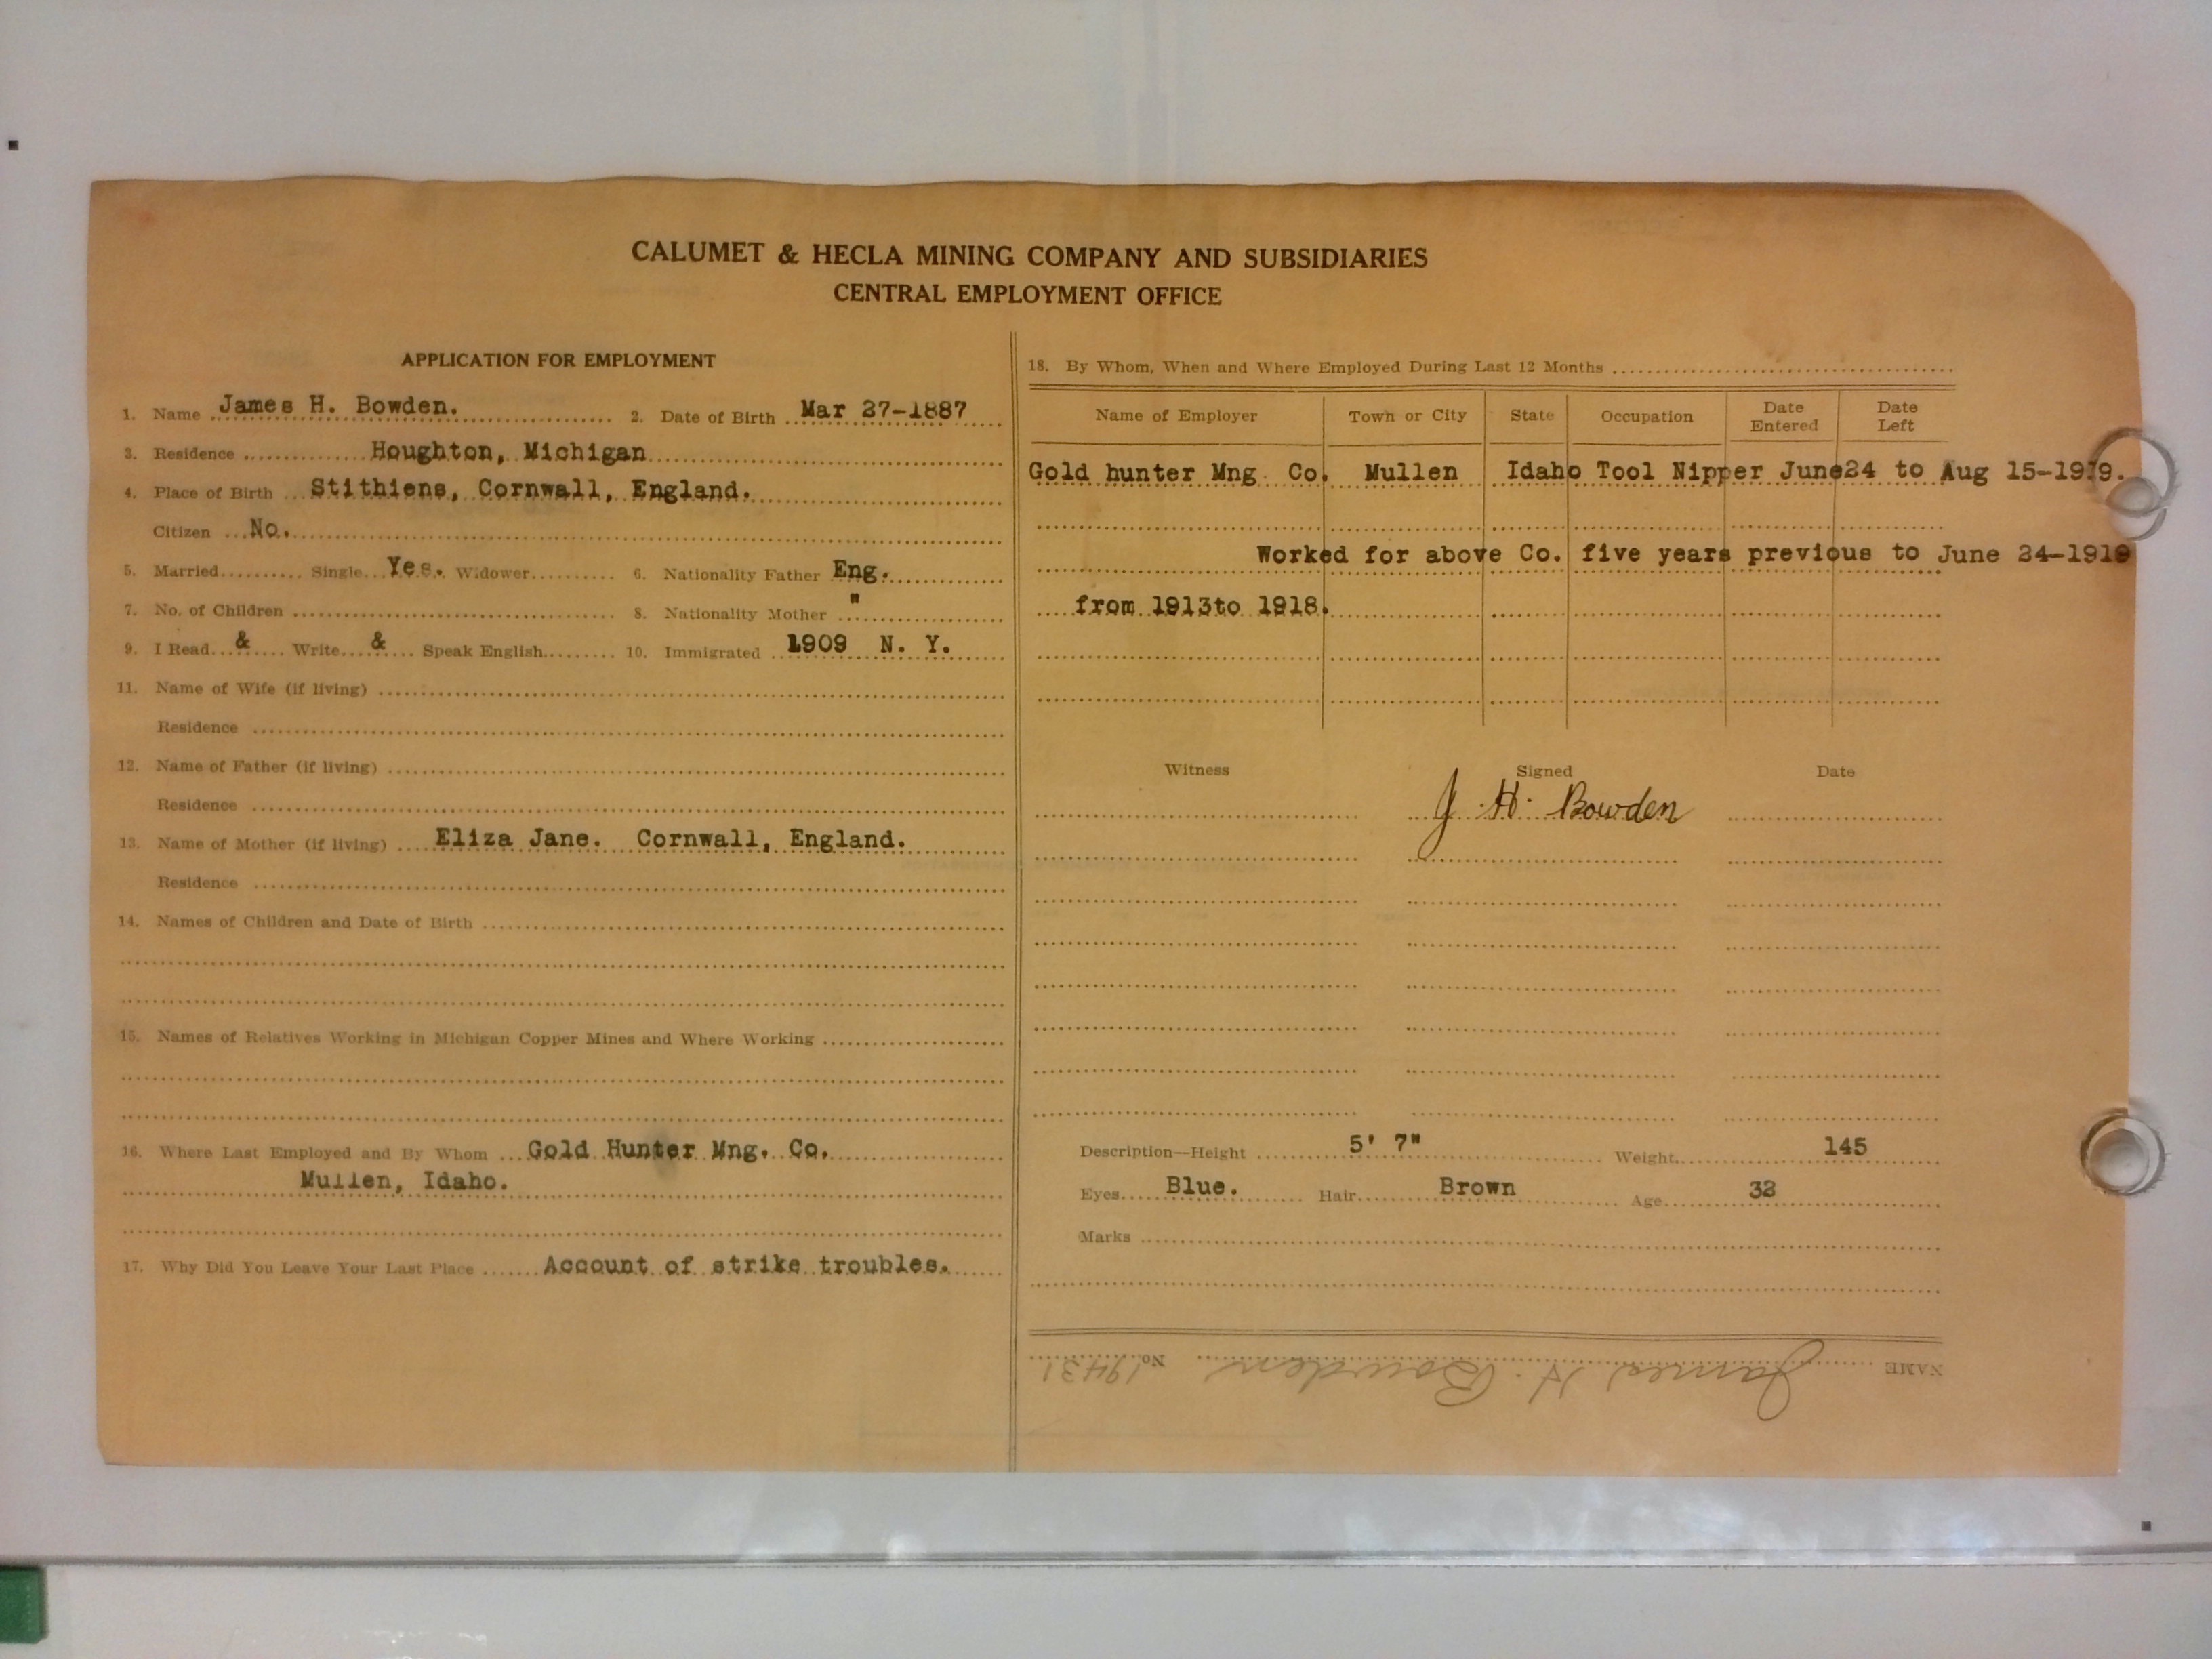 CALUMET & HECLA MINING COMPANY AND SUBSIDIARIES
CENTRAL EMPLOYMENT OFFICE
APPLICATION FOR EMPLOYMENT
1. Name James H. Bowden. 2. Date of Birth Mar 27-1887
3. Residence Houghton, Michigan
4. Place of Birth Stithiens, Cornwall, England.
Citizen No.
5. Married Single Yes. Widower 6. Nationality Father Eng.
7. No. of Children 8. Nationality Mother "
9. I Read & Write & Speak English 10. Immigrated 1909 N. Y.
11. Name of Wife (if living)
Residence
12. Name of Father (if living)
Residence
13. Name of Mother (if living) Eliza Jane. Cornwall, England.
Residence
14. Names of Children and Date of Birth
15. Names of Relatives Working in Michigan Copper Mines and Where Working
16. Where Last Employed and By Whom Gold Hunter Mng. Co.
Mullen, Idaho.
17. Why Did You Leave Your Last Place Account of strike troubles.
18. By Whom, When and Where Employed During Last 12 Months
Name of Employer Town or City State Occupation Date Entered Date Left
Gold hunter Mng Co. Mullen Idaho Tool Nipper June24 to Aug 15-1919.
Worked for above Co. five years previous to June 24-1919
from 1913to 1918.
Witness Signed Date
J. H. Bowden
Description—Height 5' 7" Weight 145
Eyes Blue. Hair Brown Age 32
Marks
NAME James H. Bowden No. 19431